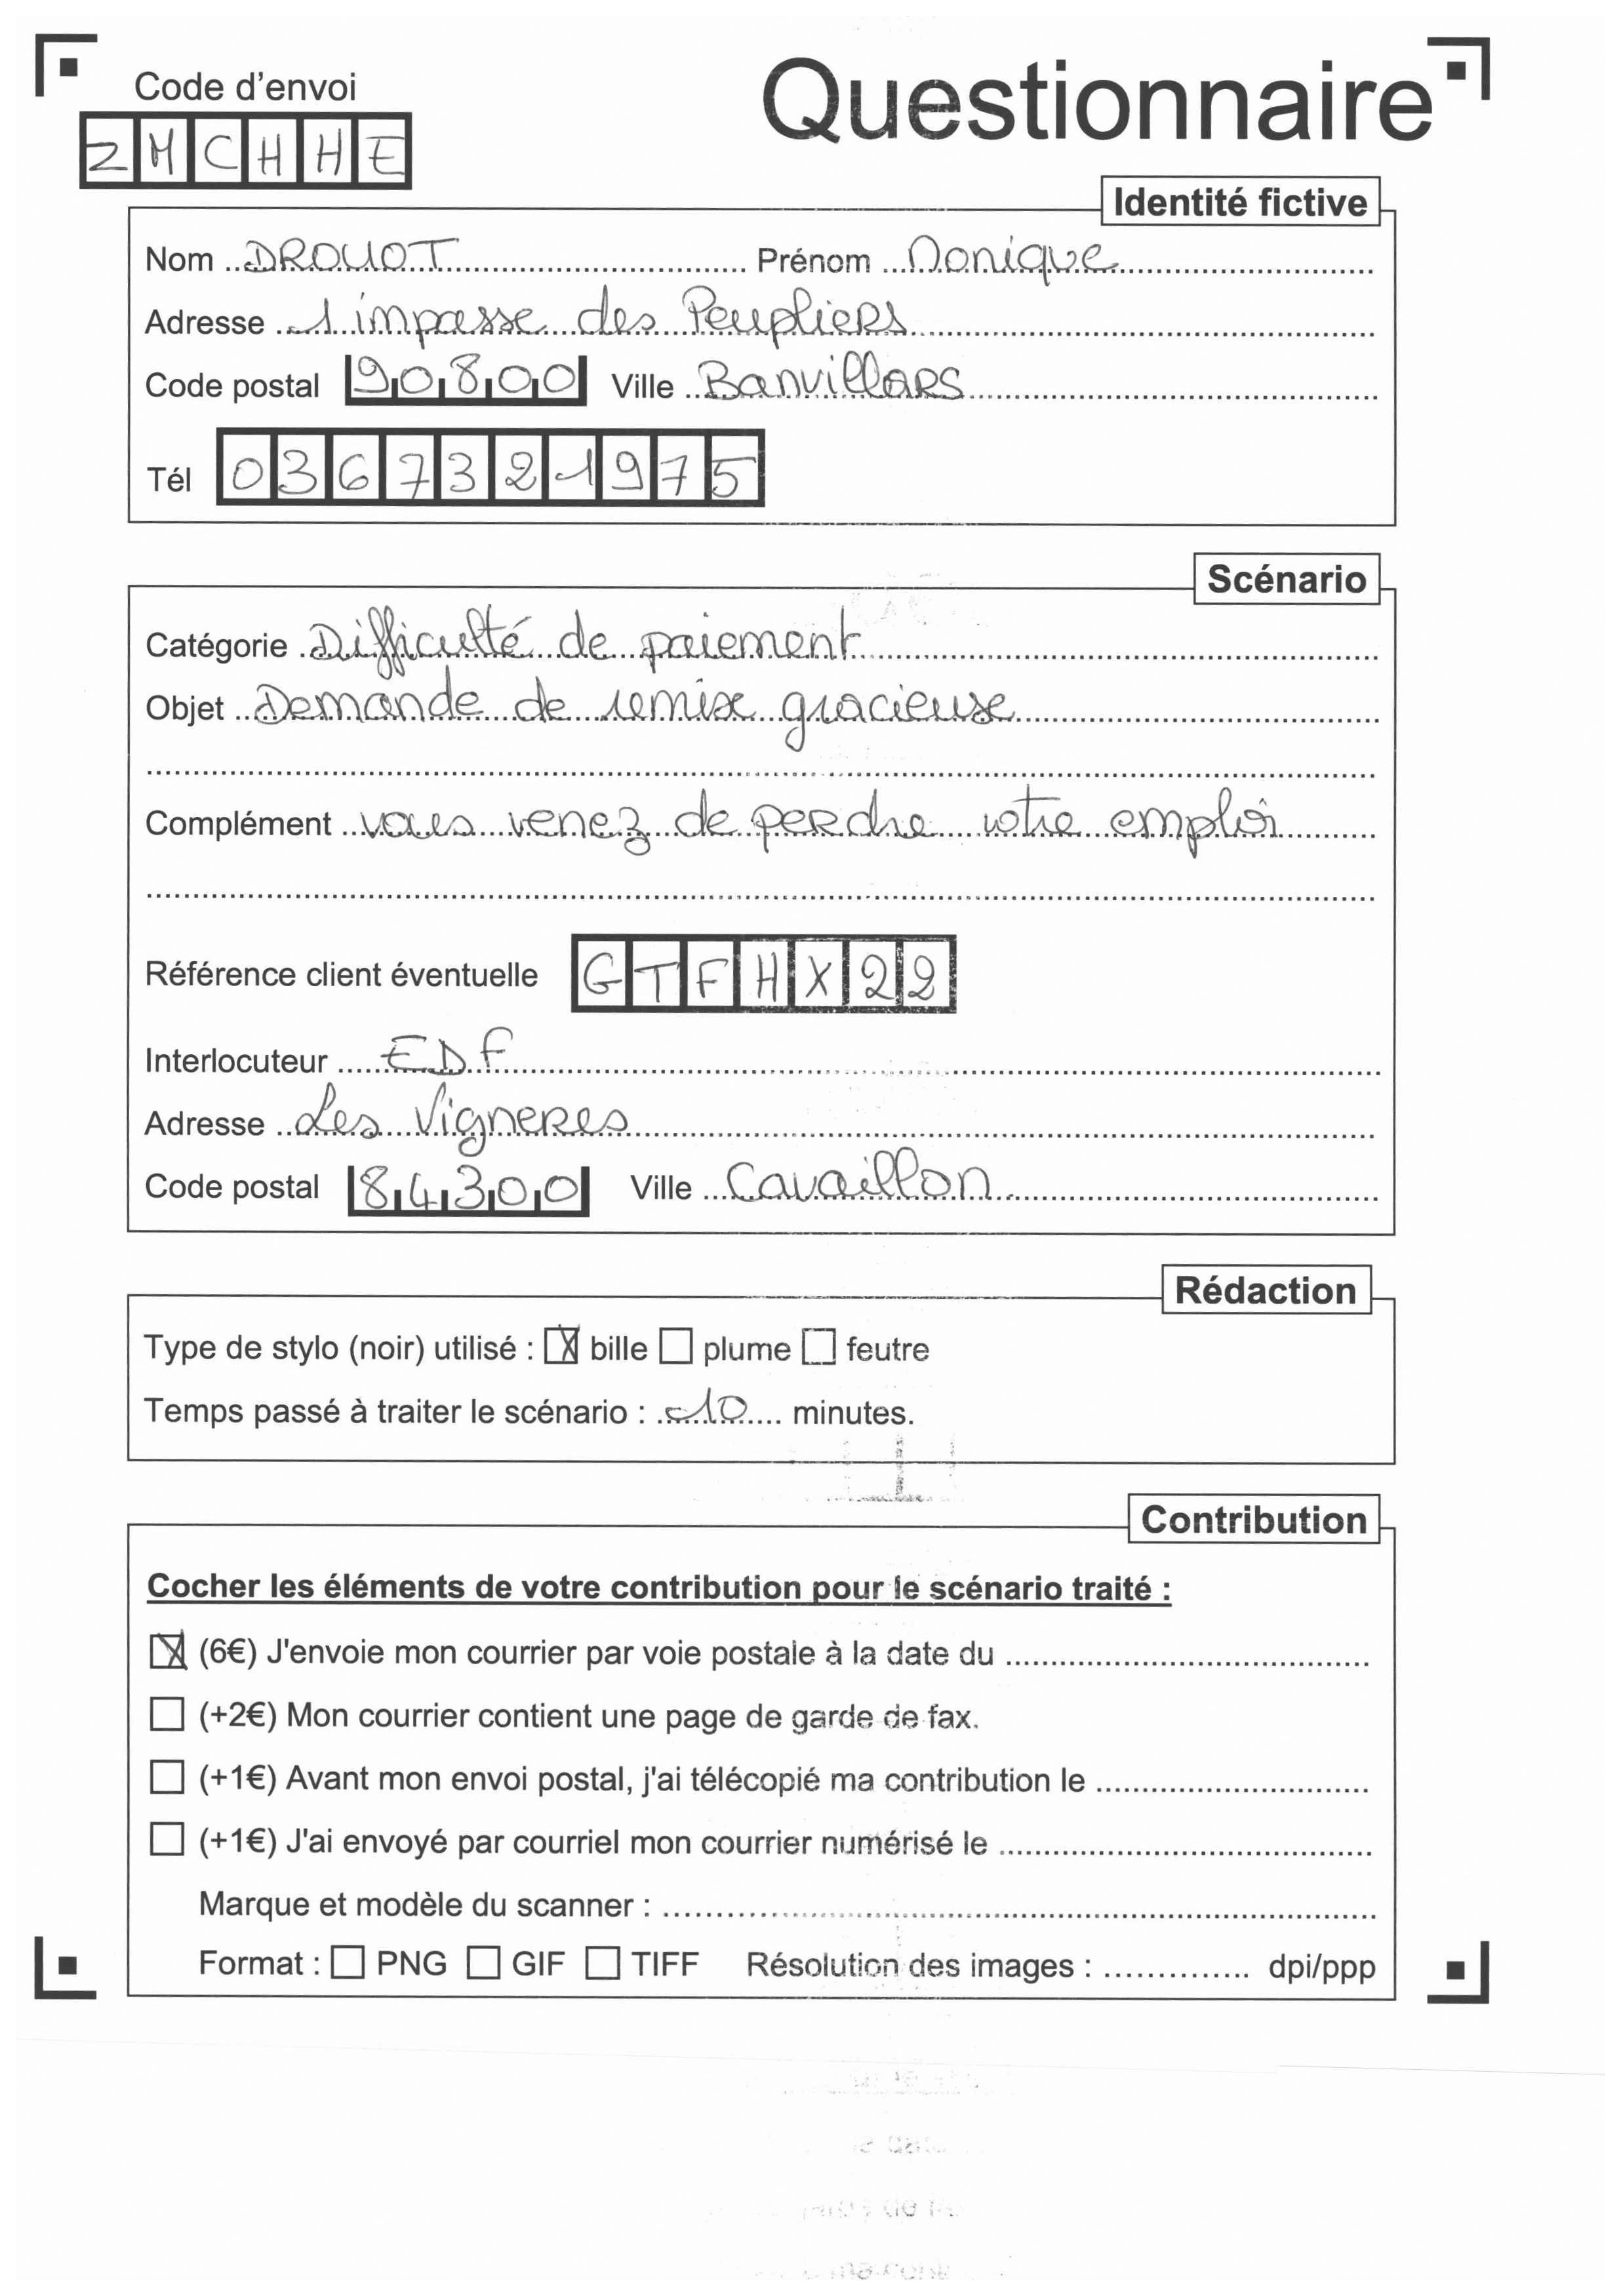 Code d'envoi
Questionnaire
ZMCHHE
Identité fictive
Nom DROUOT Prénom Monique
Adresse 1 impasse des Peupliers
Code postal 90800 Ville Banvillars
Tél 0367321975
Scénario
Catégorie Difficulté de paiement
Objet Demande de remise gracieuse
Complément vous venez de perdre votre emploi
Référence client éventuelle GTFHX22
Interlocuteur EDF
Adresse Les Vigneres
Code postal 84300 Ville Cavaillon
Rédaction
Type de stylo (noir) utilisé : ☒ bille ☐ plume ☐ feutre
Temps passé à traiter le scénario : 10 minutes.
Contribution
Cocher les éléments de votre contribution pour le scénario traité :
☒ (6€) J'envoie mon courrier par voie postale à la date du
☐ (+2€) Mon courrier contient une page de garde de fax.
☐ (+1€) Avant mon envoi postal, j'ai télécopié ma contribution le
☐ (+1€) J'ai envoyé par courriel mon courrier numérisé le
Marque et modèle du scanner :
Format : ☐ PNG ☐ GIF ☐ TIFF Résolution des images : dpi/ppp